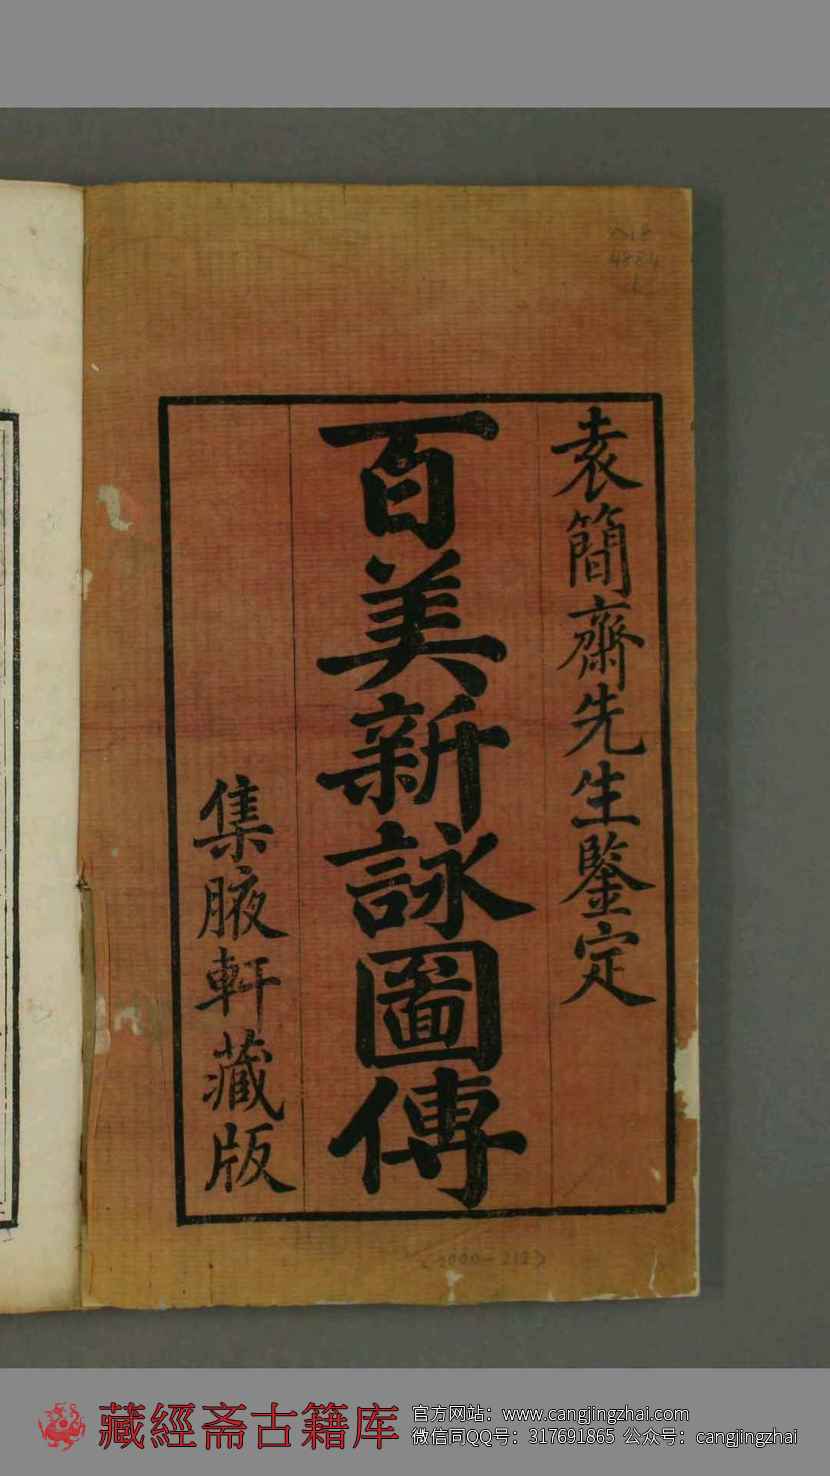 袁簡齋先生鑒定
百美新詠圖傳
集腋軒藏版
藏經斋古籍库
官方网站：www.cangjingzhai.com
微信同QQ号：317691865 公众号：cangjingzhai